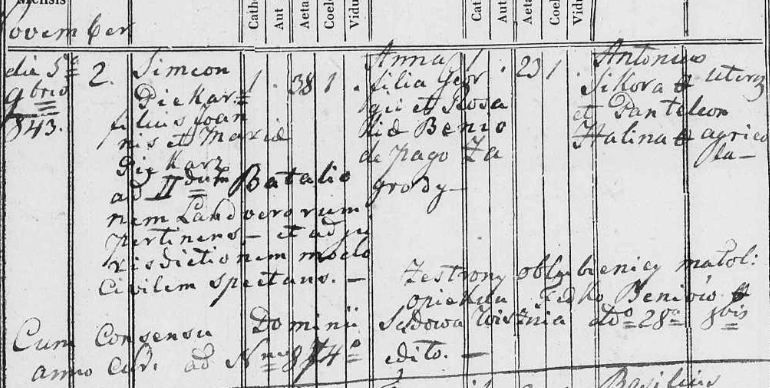 Mensis
Cath
Aut
Aeta
Coel
Vidu
Cat
Aut
Aeta
Coel
Vidu
ovember
die 5ª
9brio
843.
2.
Simeon
Piekarz
filius Joan
nis et Mariæ
Piekarz
ad IIdum Batalio
nem Landverorum
pertinens, — et ad ju
risdictionem modo
Civilem spectans. —
1
38
1
Anna
filia Geor
gii et
Benio
de pago Za
grody —
1
23
1
Antonius
Sikora et
et Panteleon
Halina agrico
la —
Ze strony oblubienicy małol:
opiekun Fedko Beniów
Sądowa Wisznia ddo 28ª 8bris
Cum Consensu Dominii
anno Cur. ad Nrum 874º
edito. —
Basilius